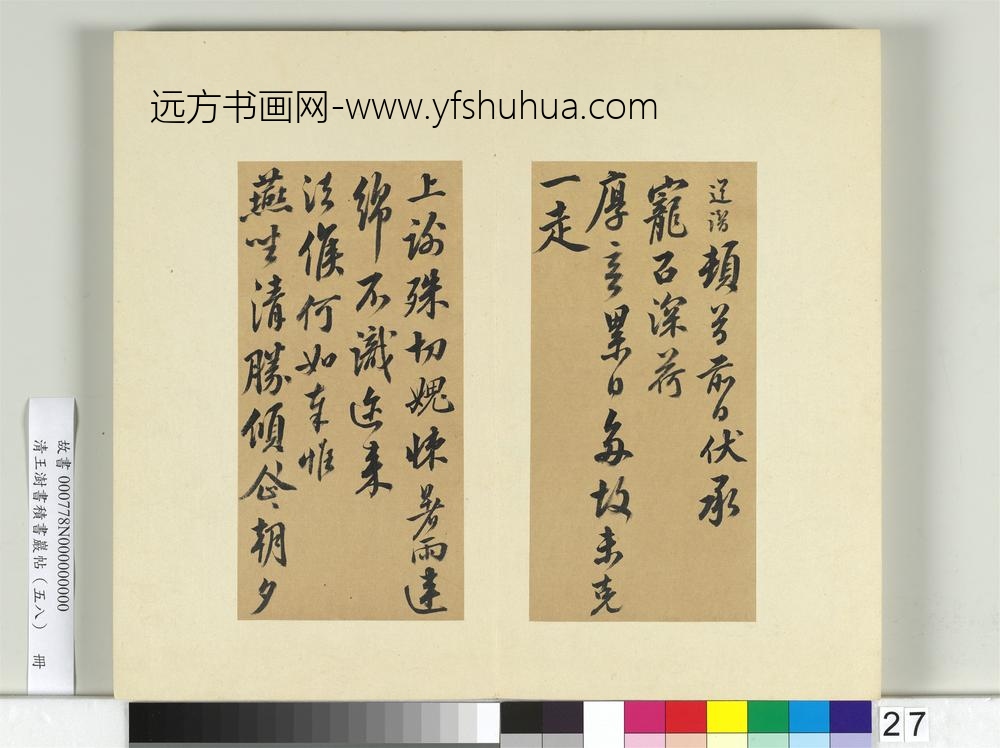 远方书画网-www.yfshuhua.com
頓首前日伏承
寵召深荷
厚意累日多故未克
一走
上謝殊切媿悚暑雨連
綿不識邇來
法候何如奉惟
燕坐清勝傾企朝夕
故書 000778N000000000
清王澍書積書巖帖(五八) 冊
27